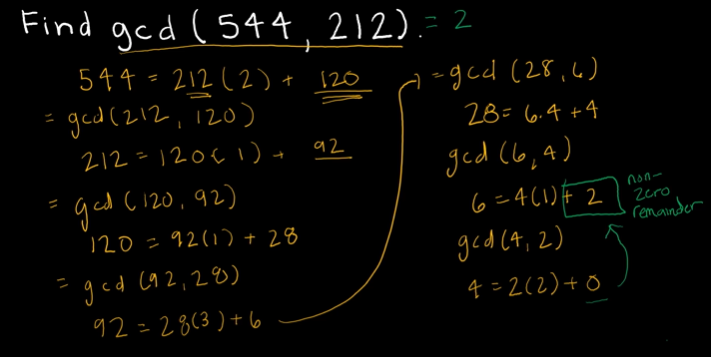 Find gcd (544, 212). = 2
544 = 212(2) + 120
= gcd(212, 120)
212 = 120(1) + 92
= gcd (120, 92)
120 = 92(1) + 28
= gcd (92, 28)
92 = 28(3) + 6
= gcd (28, 6)
28 = 6.4 + 4
gcd (6, 4)
6 = 4(1) + 2
non-
zero
remainder
gcd(4, 2)
4 = 2(2) + 0